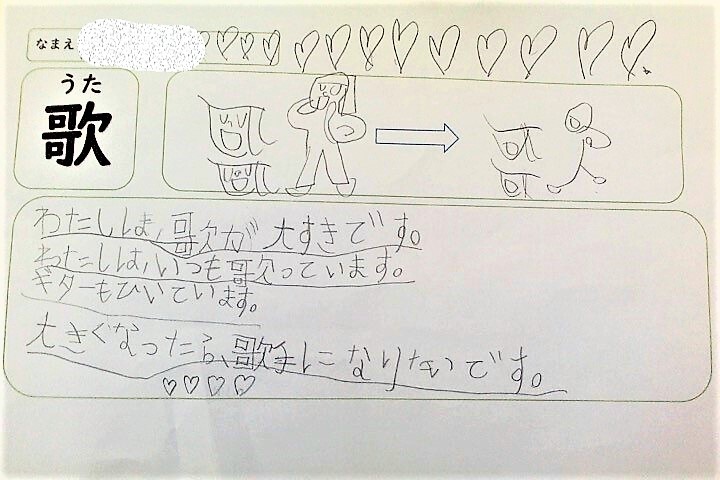 なまえ
うた
歌
わたしは、歌が大すきです。
わたしは、いつも歌っています。
ギターもひいています。
大きくなったら、歌手になりたいです。